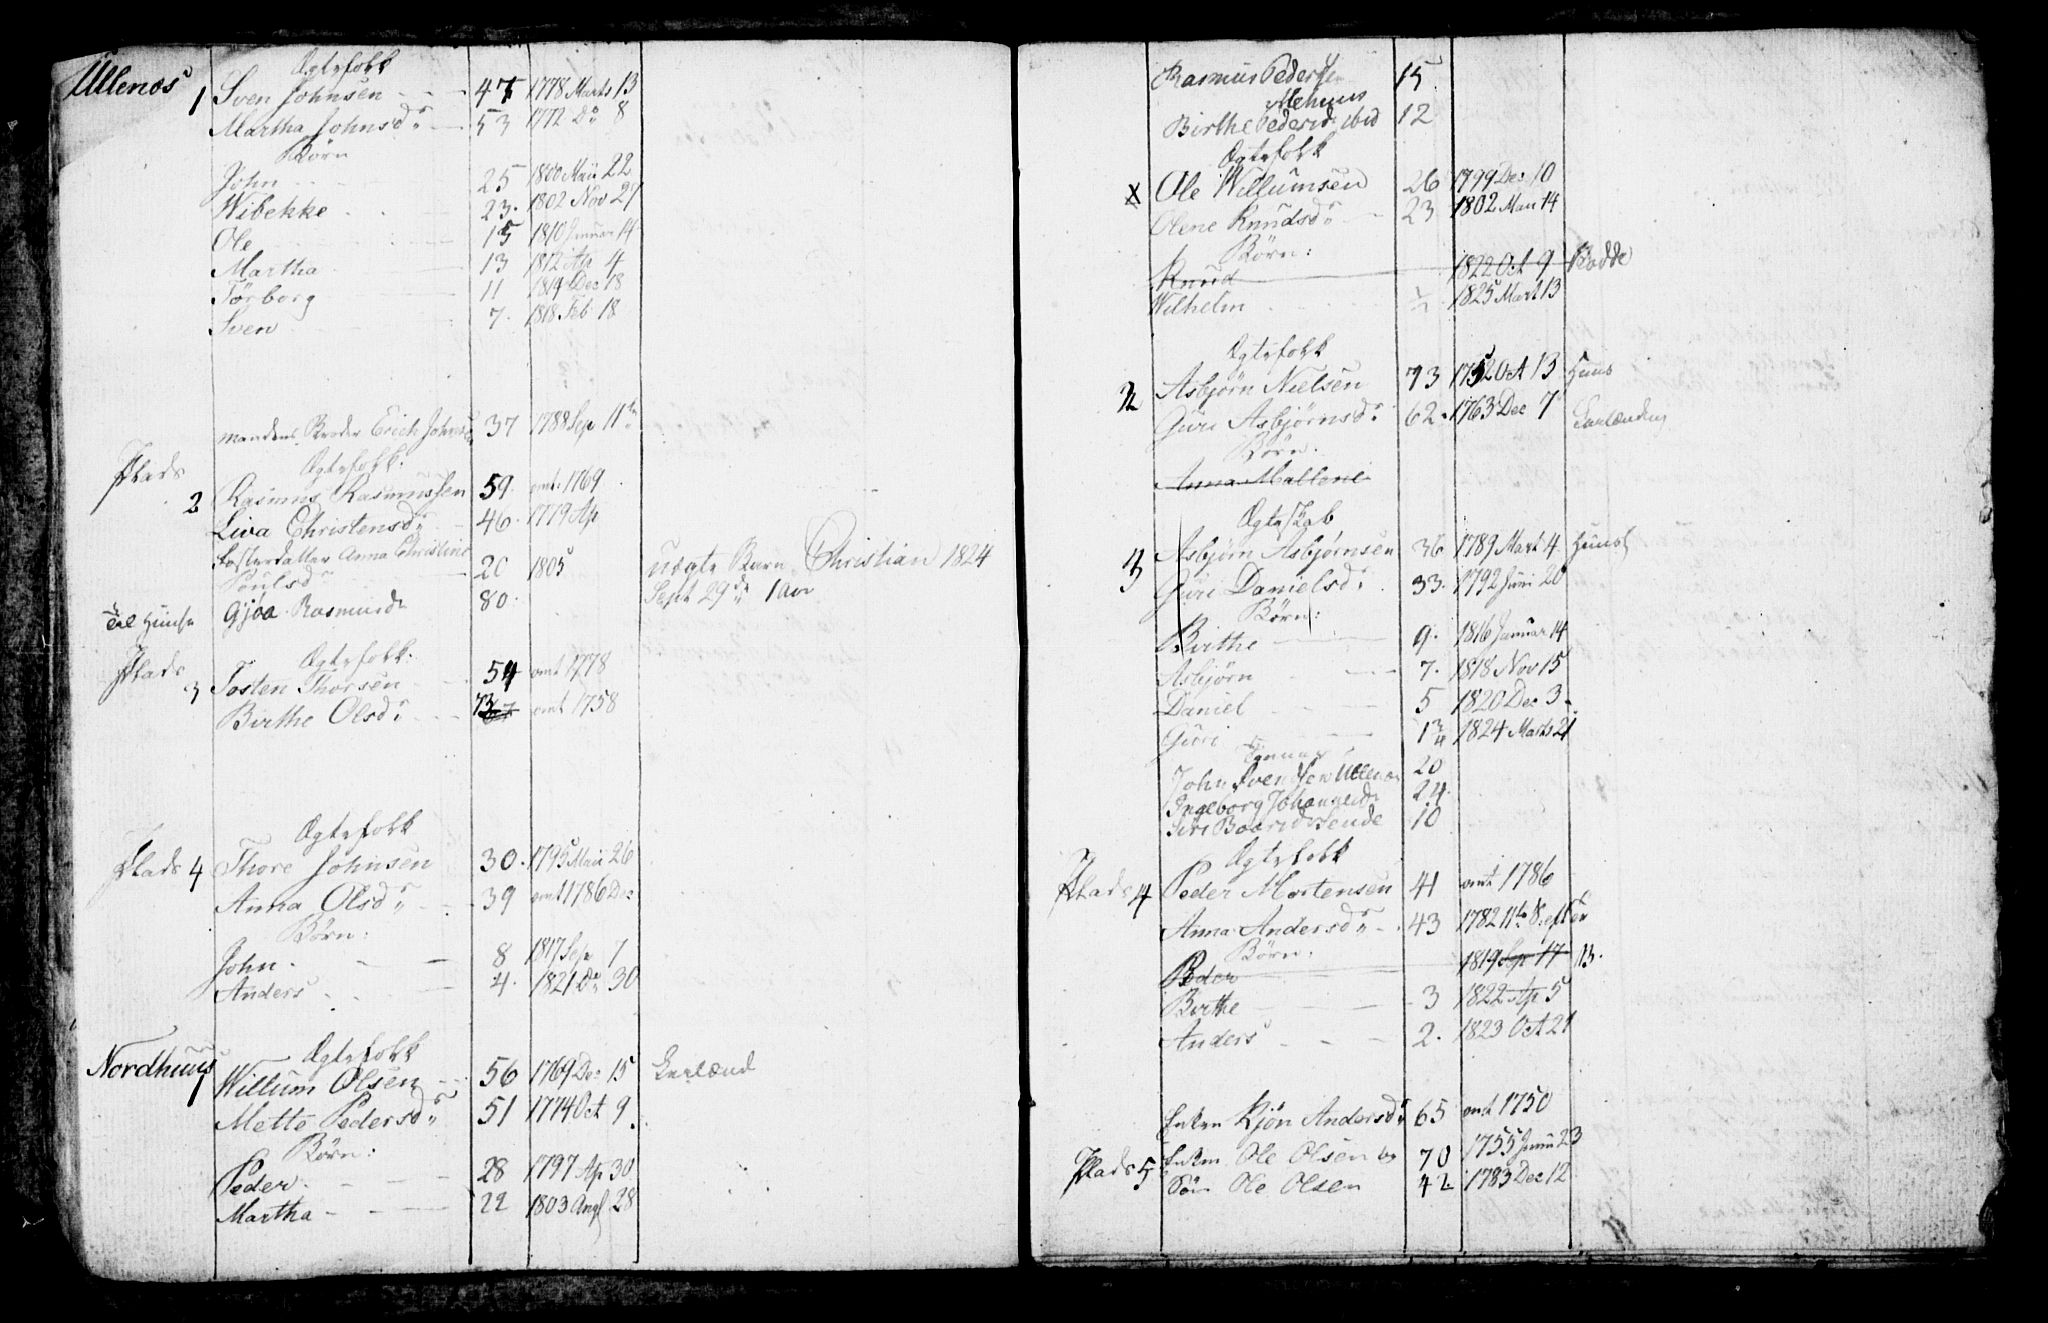 Ullenæs
Ægtefolk
1 Sven Johnsen 47 1778 Marts 13
Martha Johnsd. 53 1772 Do 8
Børn
John 25 1800 Maii 22
Wibekke 23. 1802 Nov 27
Ole 15 1810 Januar 14
Martha 13 1812 Ap 4
Törborg 11 1814 Dec 18
Sven 7. 1818 Feb. 18
mandens Broder Erich Johns 37 1788 Sep 11te
Ægtefolk.
Plads 2 Rasmus Rasmussen 59. omt. 1769
Liva Christensd. 46. 1779 Ap
Fosterdatter Anna Christine
Poulsd 20 1805 uægte Barn Christian 1824
Sept 29de 1 Aar
til Huuse Gjøa Rasmusd. 80.
Ægtefolk.
Plads 3 Tosten Thorsen 54 omt 1778
Birthe Olsd. 73 67 omt 1758
Ægtefolk
Plads 4 Thore Johnsen 30. 1795 Maii 26
Anna Olsd. 39 omt 1786 Dec
Børn:
John. 8 1817 Sep 7
Anders 4. 1821 Do 30
Ægtefolk
Nordhuus 1 Willum Olsen 56 1769 Dec 15
Mette Pedersd. 51 1774 Oct 9.
Børn:
Peder. 28 1797 Ap 30
Martha 22 1803 Aug 28
Rasmus Pedersen 15
Mehuus
Birthe Pedersd. ibid 12
Ægtefolk
X Ole Willumsen 26 1799 Dec 10
Olene Knudsd. 23 1802 Maii 14
Børn:
Knud 1822 Oct 9
Wilhelm ½ 1825 Mart 13
Ægtefolk
2 Asbjørn Nielsen 73 1752 Oct 13 Huus
Guri Asbjørnsd. 62. 1763 Dec 7
Børn.
Anna Mallene
Ægteskab
3 Asbjørn Asbjørnsen 36 1789 Mart 4
Guri Danielsd. 33. 1792 Juni 20
Børn:
Birthe 9. 1816 Januar 14
Asbjørn 7. 1818 Nov 15
Daniel 5 1820 Dec 3
Guri 1¾ 1824 Marts 21
John Svendsen Ullenæs 20
Ingeborg Johannesd. 24
Siri 10
Ægtefolk
Plads 4 Peder Mortensen 41 omt 1786
Anna Andersd. 43 1782 11te
Børn:
Peder 1819 Sep 17
Birthe 3 1822 Ap 5
Anders 2. 1823 Oct 21
Enken Kjøn Andersd. 65 omt 1750
Plads 5 Enkm Ole Olsen og 70 1755 Juni 23
Søn Ole Olsen 42 1783 Dec 12